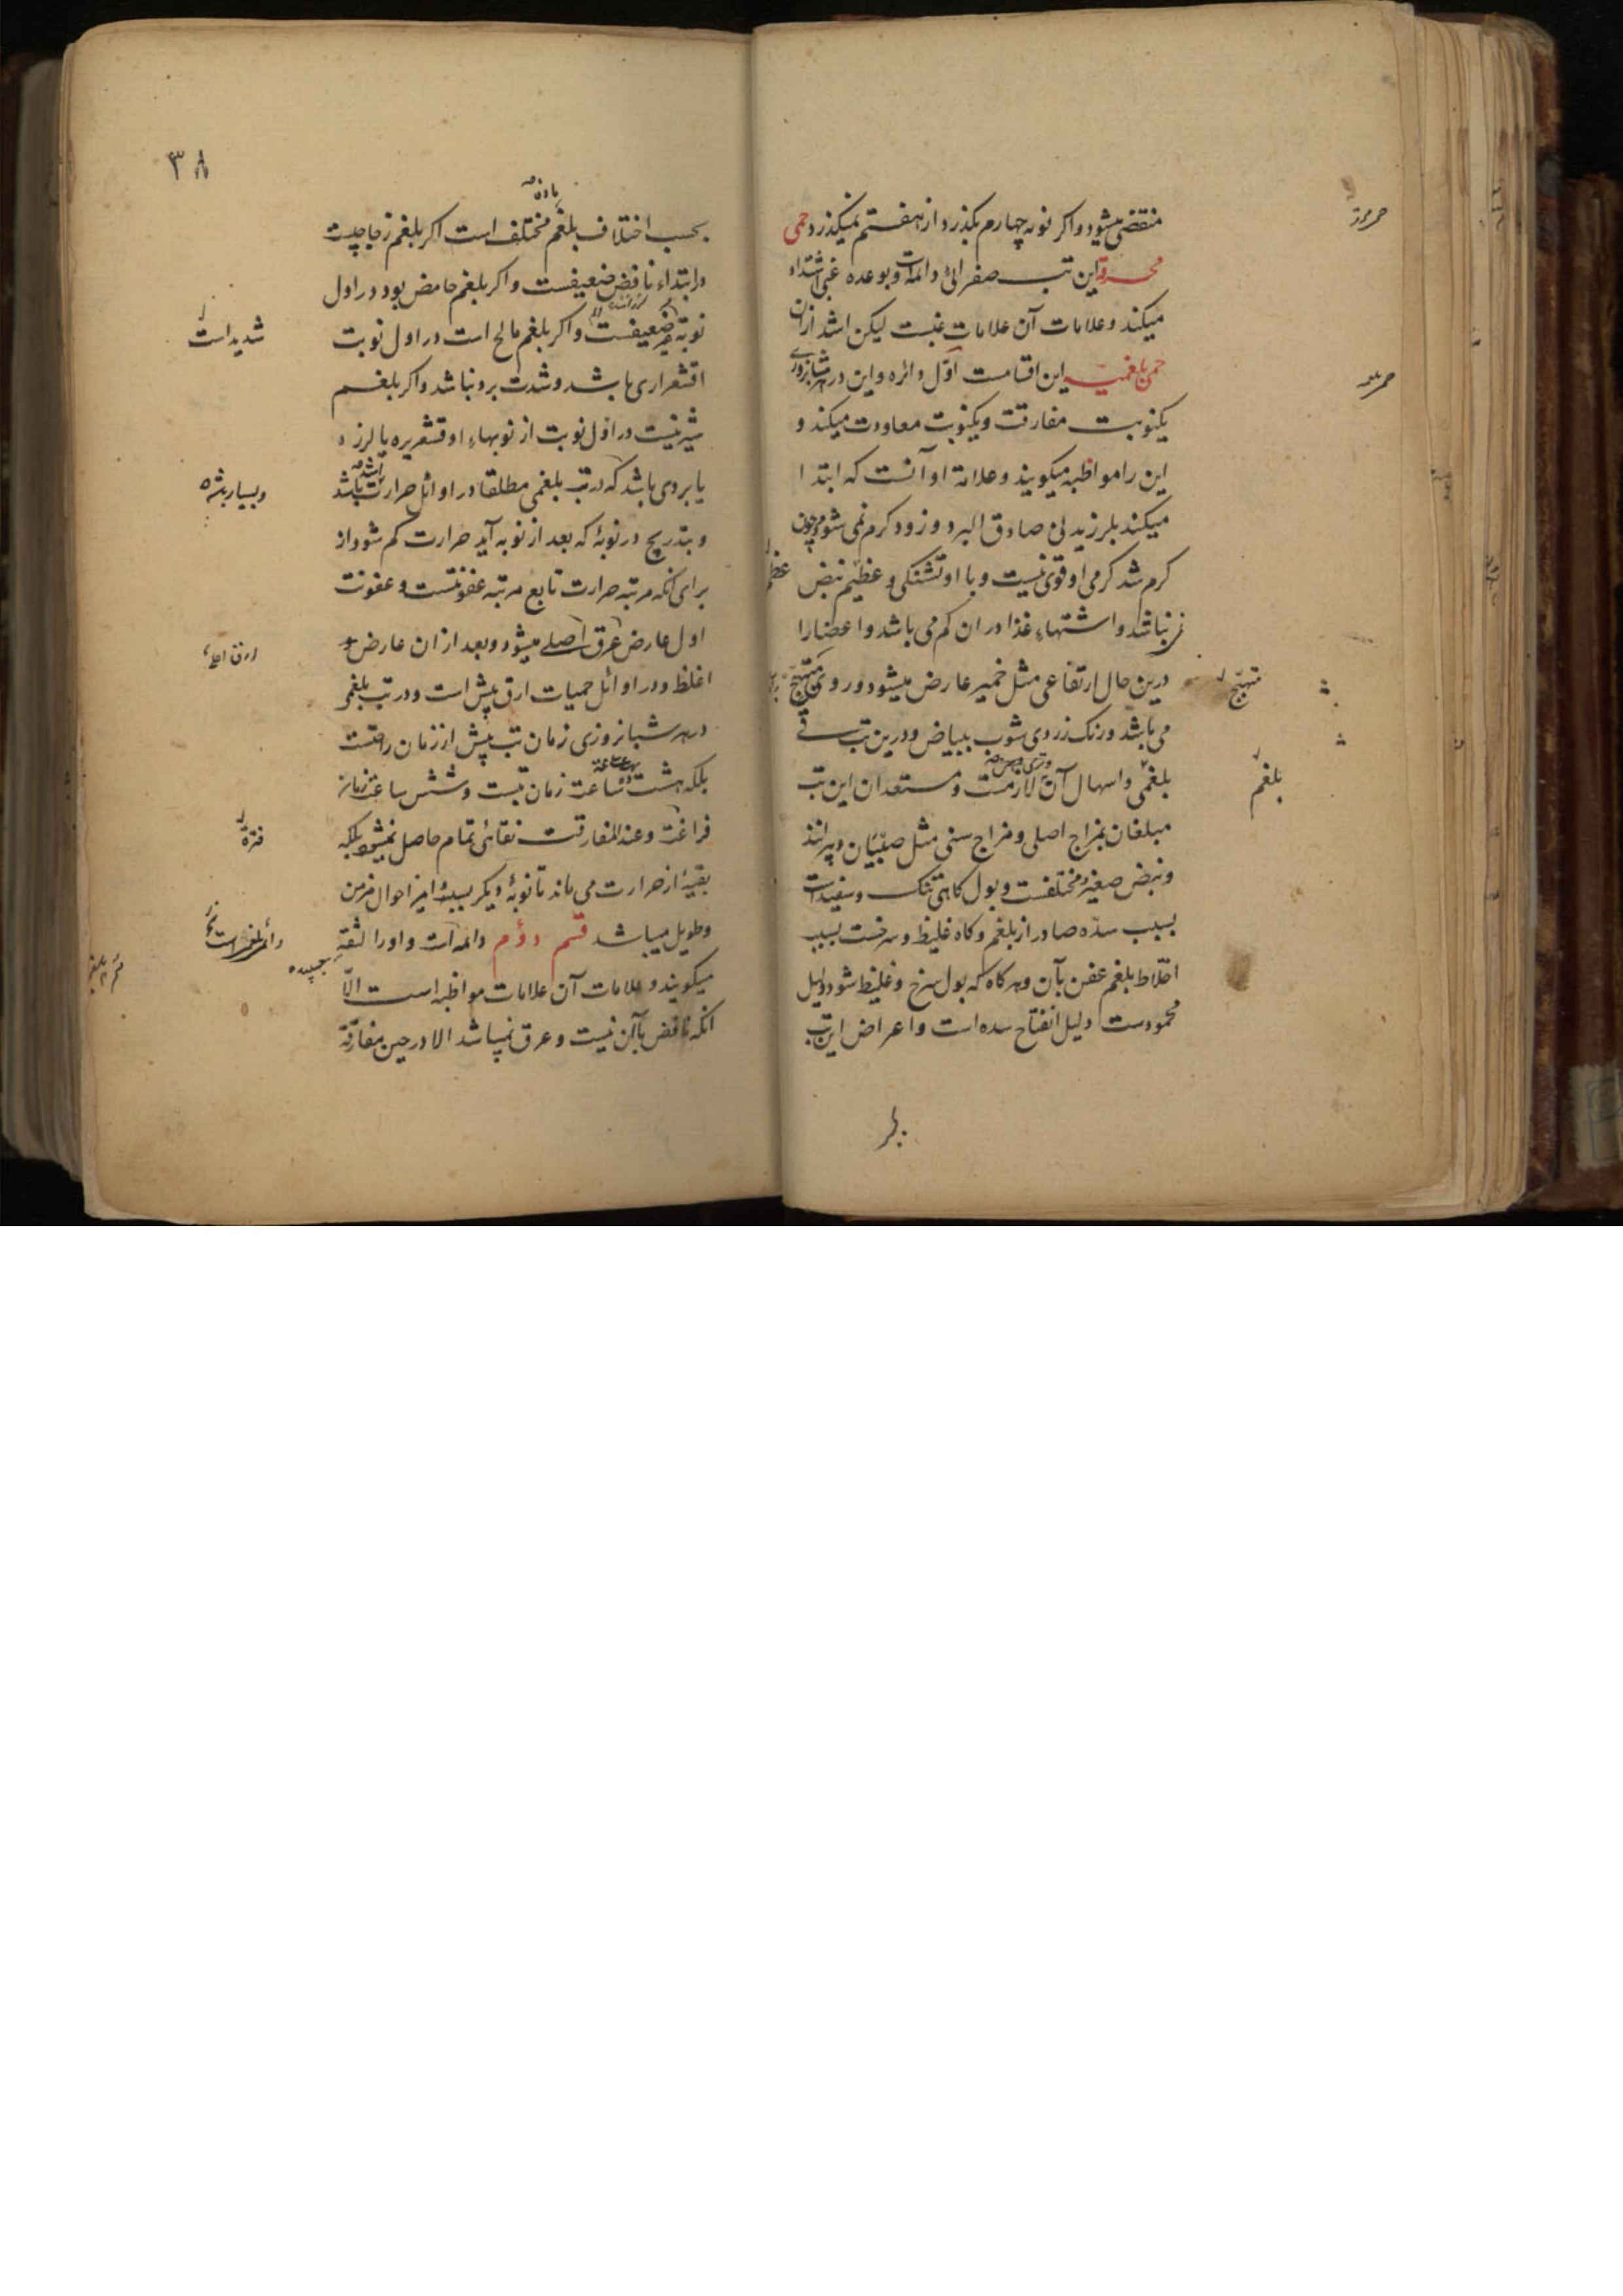 منقضی میشود و اکر نوبه چهارم بکذرد از هفتم نمیکذرد حمی
محرقة این تب صفرائی دائمه است و بوعده غبی اشتداد
میکند و علامات آن علامات غبست لیکن اشد ازان
حمی بلغمیه این اقسامست اوّل دائره و این در هر شبانروزی
یکنوبت مفارقت و یکنوبت معاودت میکند و
این را مواظبه میکویند و علامة او آنست که ابتدا
میکند بلرزیدنی صادق البرد و زود کرم نمی شود و چون
کرم شد کرمی او قوی نیست و با او تشنکی و عظیم نبض
نباشد و اشتهاء غذا دران کم می باشد و اعضا را
درین حال ارتفاعی مثل خمیر عارض میشود و روی متهیّج
می باشد و رنک زردی مشوب ببیاض و درین تب قی
بلغمی و اسهال آن لازمست و مستعدان این تب
مبلغمان بمزاج اصلی و مزاج سنی مثل صبیّان و پیرانند
و نبض صغیر و مختلفست و بول کاهی تنک و سفید است
بسبب سدّه صادر از بلغم و کاه غلیظ و سرخست بسبب
اختلاط بلغم عفن بآن و هرکاه که بول سرخ و غلیظ شود دلیل
محمودست دلیل انفتاح سده است و اعراض این تب
متهیّج
بلغم
۳۸
بحسب اختلاف بلغم مختلف است اکر بلغم زجاجیست
در ابتداء نافض ضعیفست و اکر بلغم حامض بود در اول
نوبة ضعیفست و اکر بلغم مالح است در اول نوبت
اقشعراری باشد و شدت برد نباشد و اکر بلغم
شیرینست در اوّل نوبت از نوبهاء او قشعریره با لرزه
یا بردی باشد که در تب بلغمی مطلقا در اوائل حرارت باشد
و بتدریج در نوبۀ که بعد از نوبه آید حرارت کم شود از
برای آنکه مرتبه حرارت تابع مرتبه عفونتست و عفونت
اول عارض عرق اصلی میشود و بعد از ان عارض
اغلظ و در اوائل حمیات ارق بیش است و در تب بلغمی
در هر شبانروزی زمان تب بیش از زمان راحتست
بلکه هشت ساعت زمان تبست و شش ساعت زمان
فراغت و عند المفارقت نقائی تمام حاصل نمیشود بلکه
بقیۀ از حرارت می ماند تا نوبۀ دیکر بسبب
و طویل میباشد قسم دوّم دائمه است و اورا لثقه
میکویند و علامات آن علامات مواظبه است الّا
انکه نافض بآن نیست و عرق نمیباشد الا در حین مفارقة
شدید است
فترة